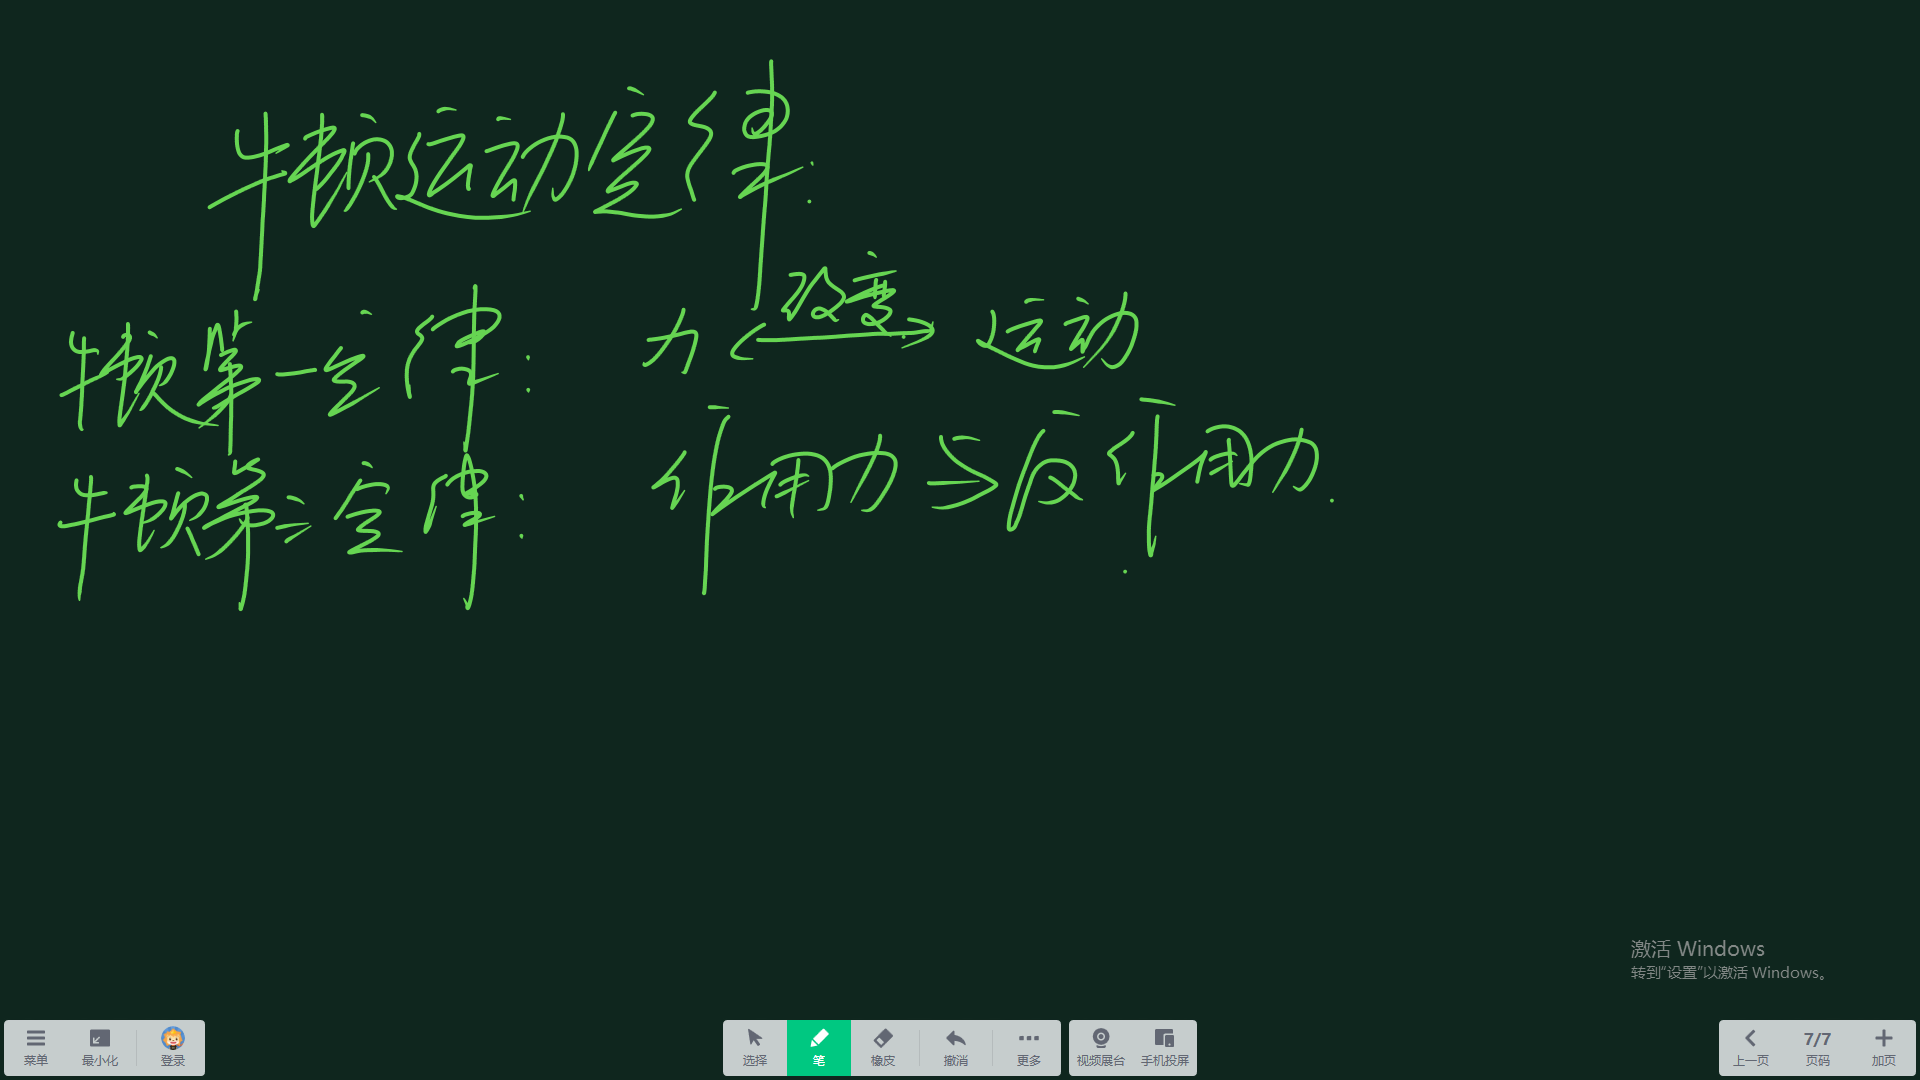 牛顿运动定律:
牛顿第一定律: 力 改变 运动
牛顿第三定律: 作用力与反作用力.
激活 Windows
转到“设置”以激活 Windows。
菜单 最小化 登录 选择 笔 橡皮 撤消 更多 视频展台 手机投屏 上一页 7/7 页码 加页